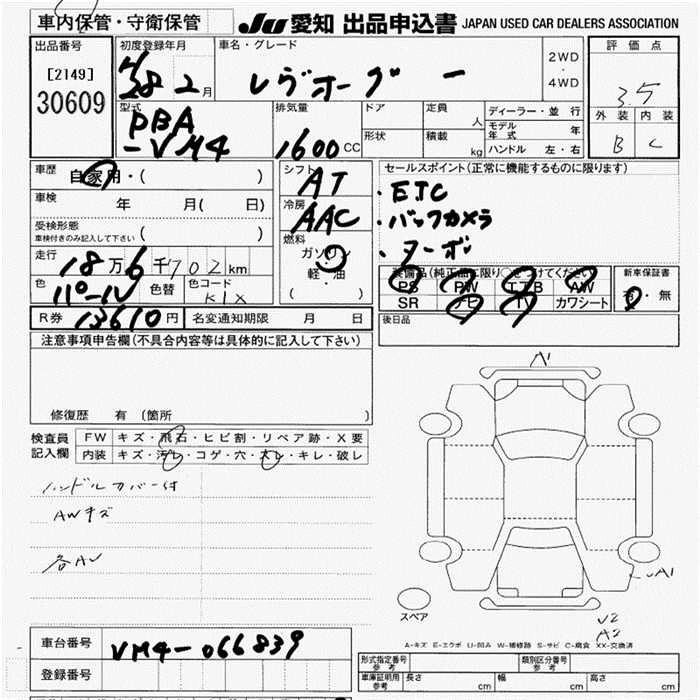 車内保管・守衛保管
JU 愛知 出品申込書 JAPAN USED CAR DEALERS ASSOCIATION
出品番号
[2149]
30609
初度登録年月
28 2月
車名・グレード
レヴォーグ
2WD
・
4WD
評価点
3.5
外装 内装
B C
型式
DBA
-VM4
排気量
1600cc
ドア
形状
定員 人
積載 kg
ディーラー・並行
モデル年式 年
ハンドル 左・右
車歴
自家用・( )
車検
年 月( 日)
受検形態
車検付きのみ記入して下さい ( )
走行
18万6千702km
色
パール
色替
色コード
K1X
R券 13610円
名変通知期限 月 日
シフト
AT
冷房
AAC
燃料
ガソリン
軽・油
( )
セールスポイント(正常に機能するものに限ります)
・ETC
・バックカメラ
・ターボ
装備品(純正品に限り○をつけてください)
PS PW エアB AW
SR ナビ TV カワシート
新車保証書
有・無
後日品
注意事項申告欄(不具合内容等は具体的に記入して下さい)
修復歴 有(箇所 )
検査員
記入欄
FW キズ・飛石・ヒビ割・リペア跡・X要
内装 キズ・汚レ・コゲ・穴・スレ・キレ・破レ
ハンドルカバー付
AWキズ
各AU
A1
UA1
U2
A2
スペア
A-キズ E-エクボ U-凹み W-補修跡 S-サビ C-腐食 XX-交換済
車台番号 VM4-066839
登録番号
形式指定番号
参考
類別区分番号
参考
車庫証明用
参考
長さ cm
幅 cm
高さ cm